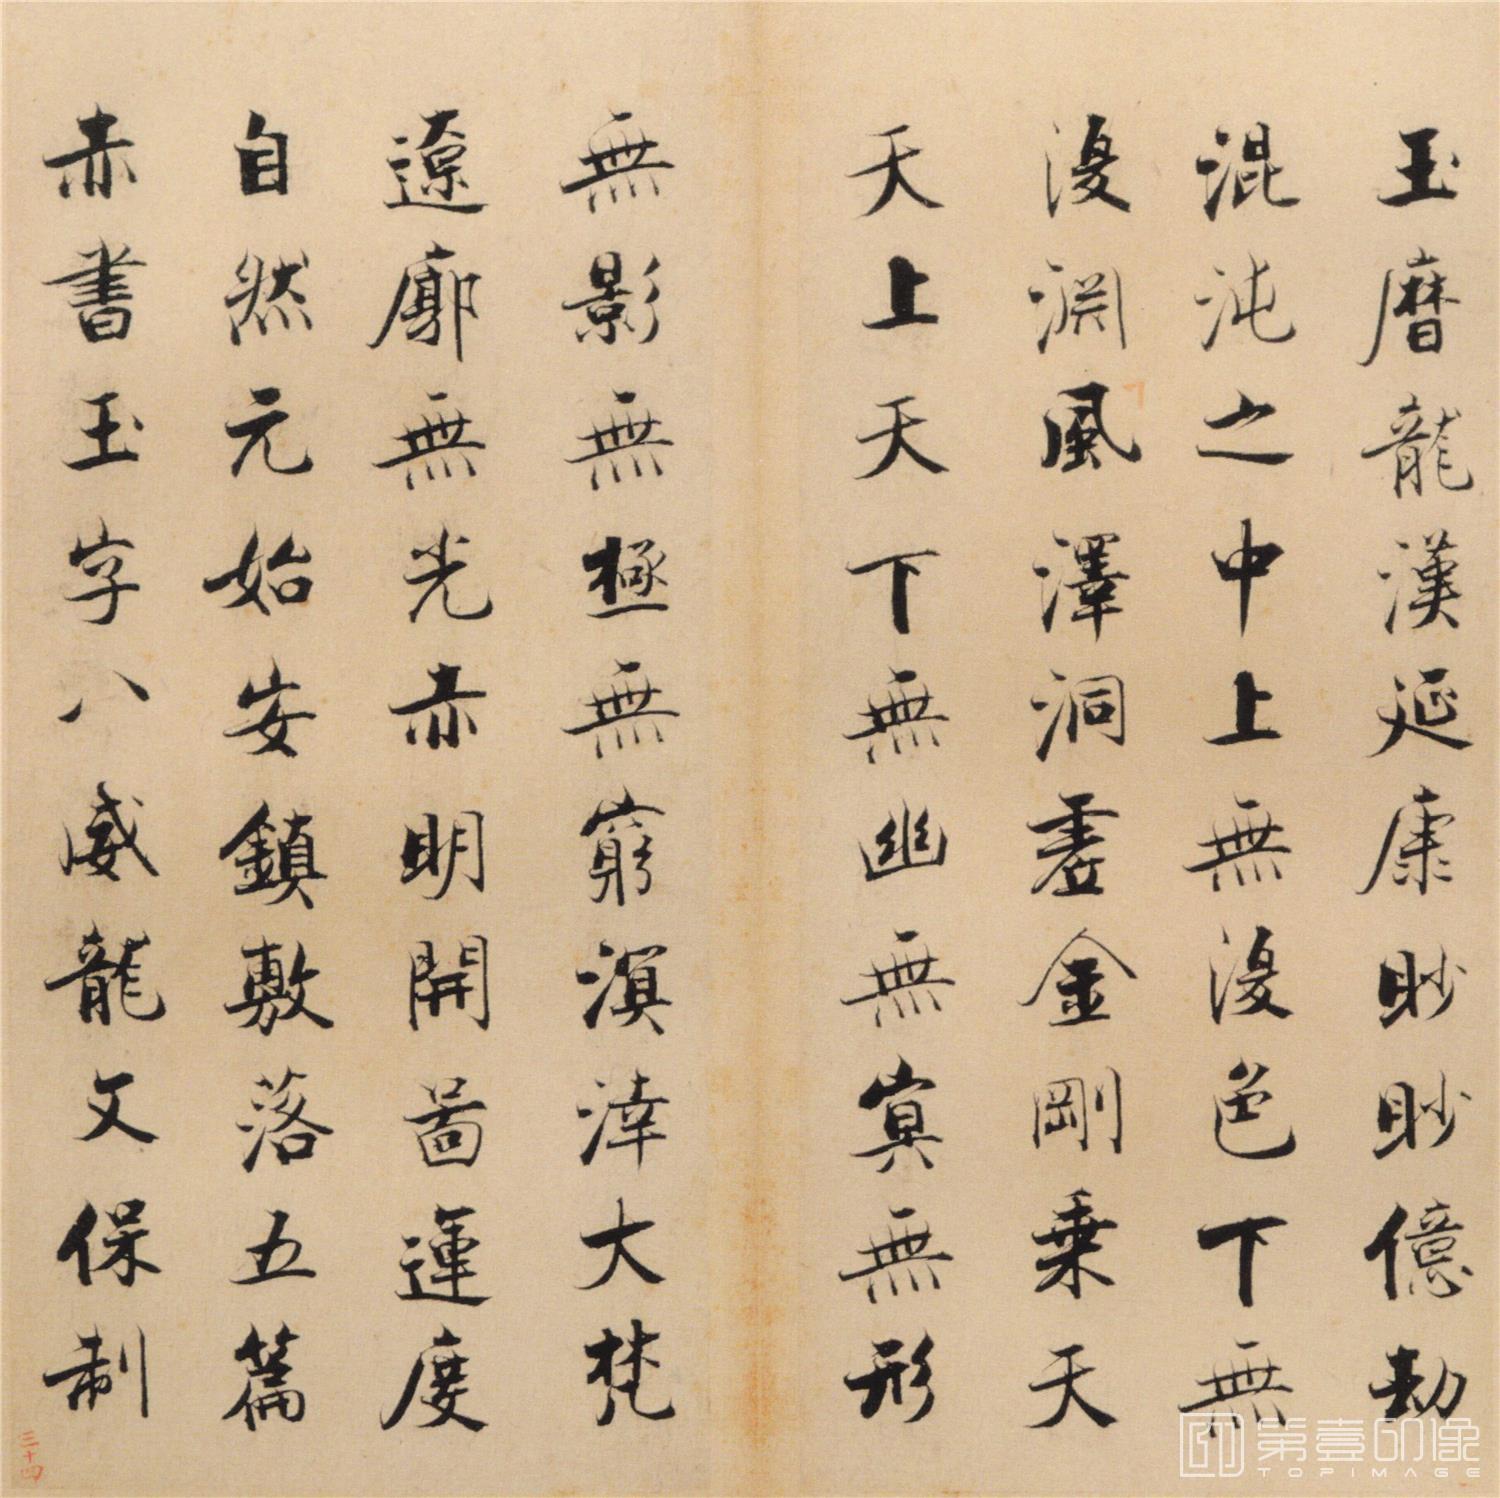 玉曆龍漢延康眇眇億劫
混沌之中上無復色下無
復淵風澤洞虛金剛乗天
天上天下無幽無冥無形
無影無極無窮溟涬大梵
遼廓無光赤明開啚運度
自然元始安鎮敷落五篇
赤書玉字八威龍文保制
三十四
第壹印像
TOPIMAGE